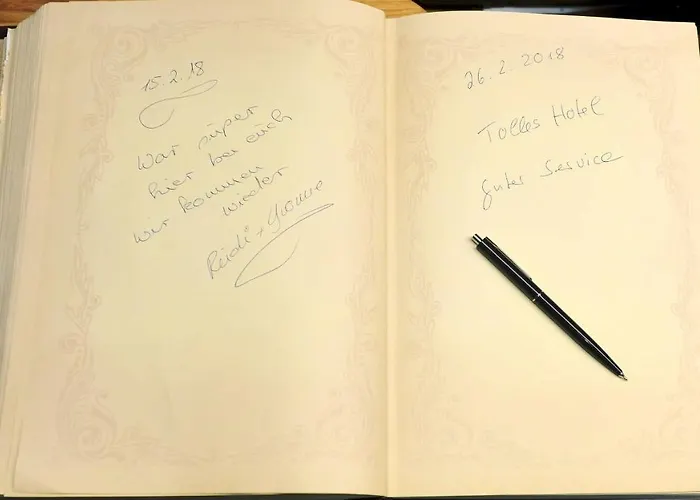 15.2.18
War super
hier bei euch
wir kommen
wieder
Rudi + Yvonne
26.2.2018
Tolles Hotel
guter Service